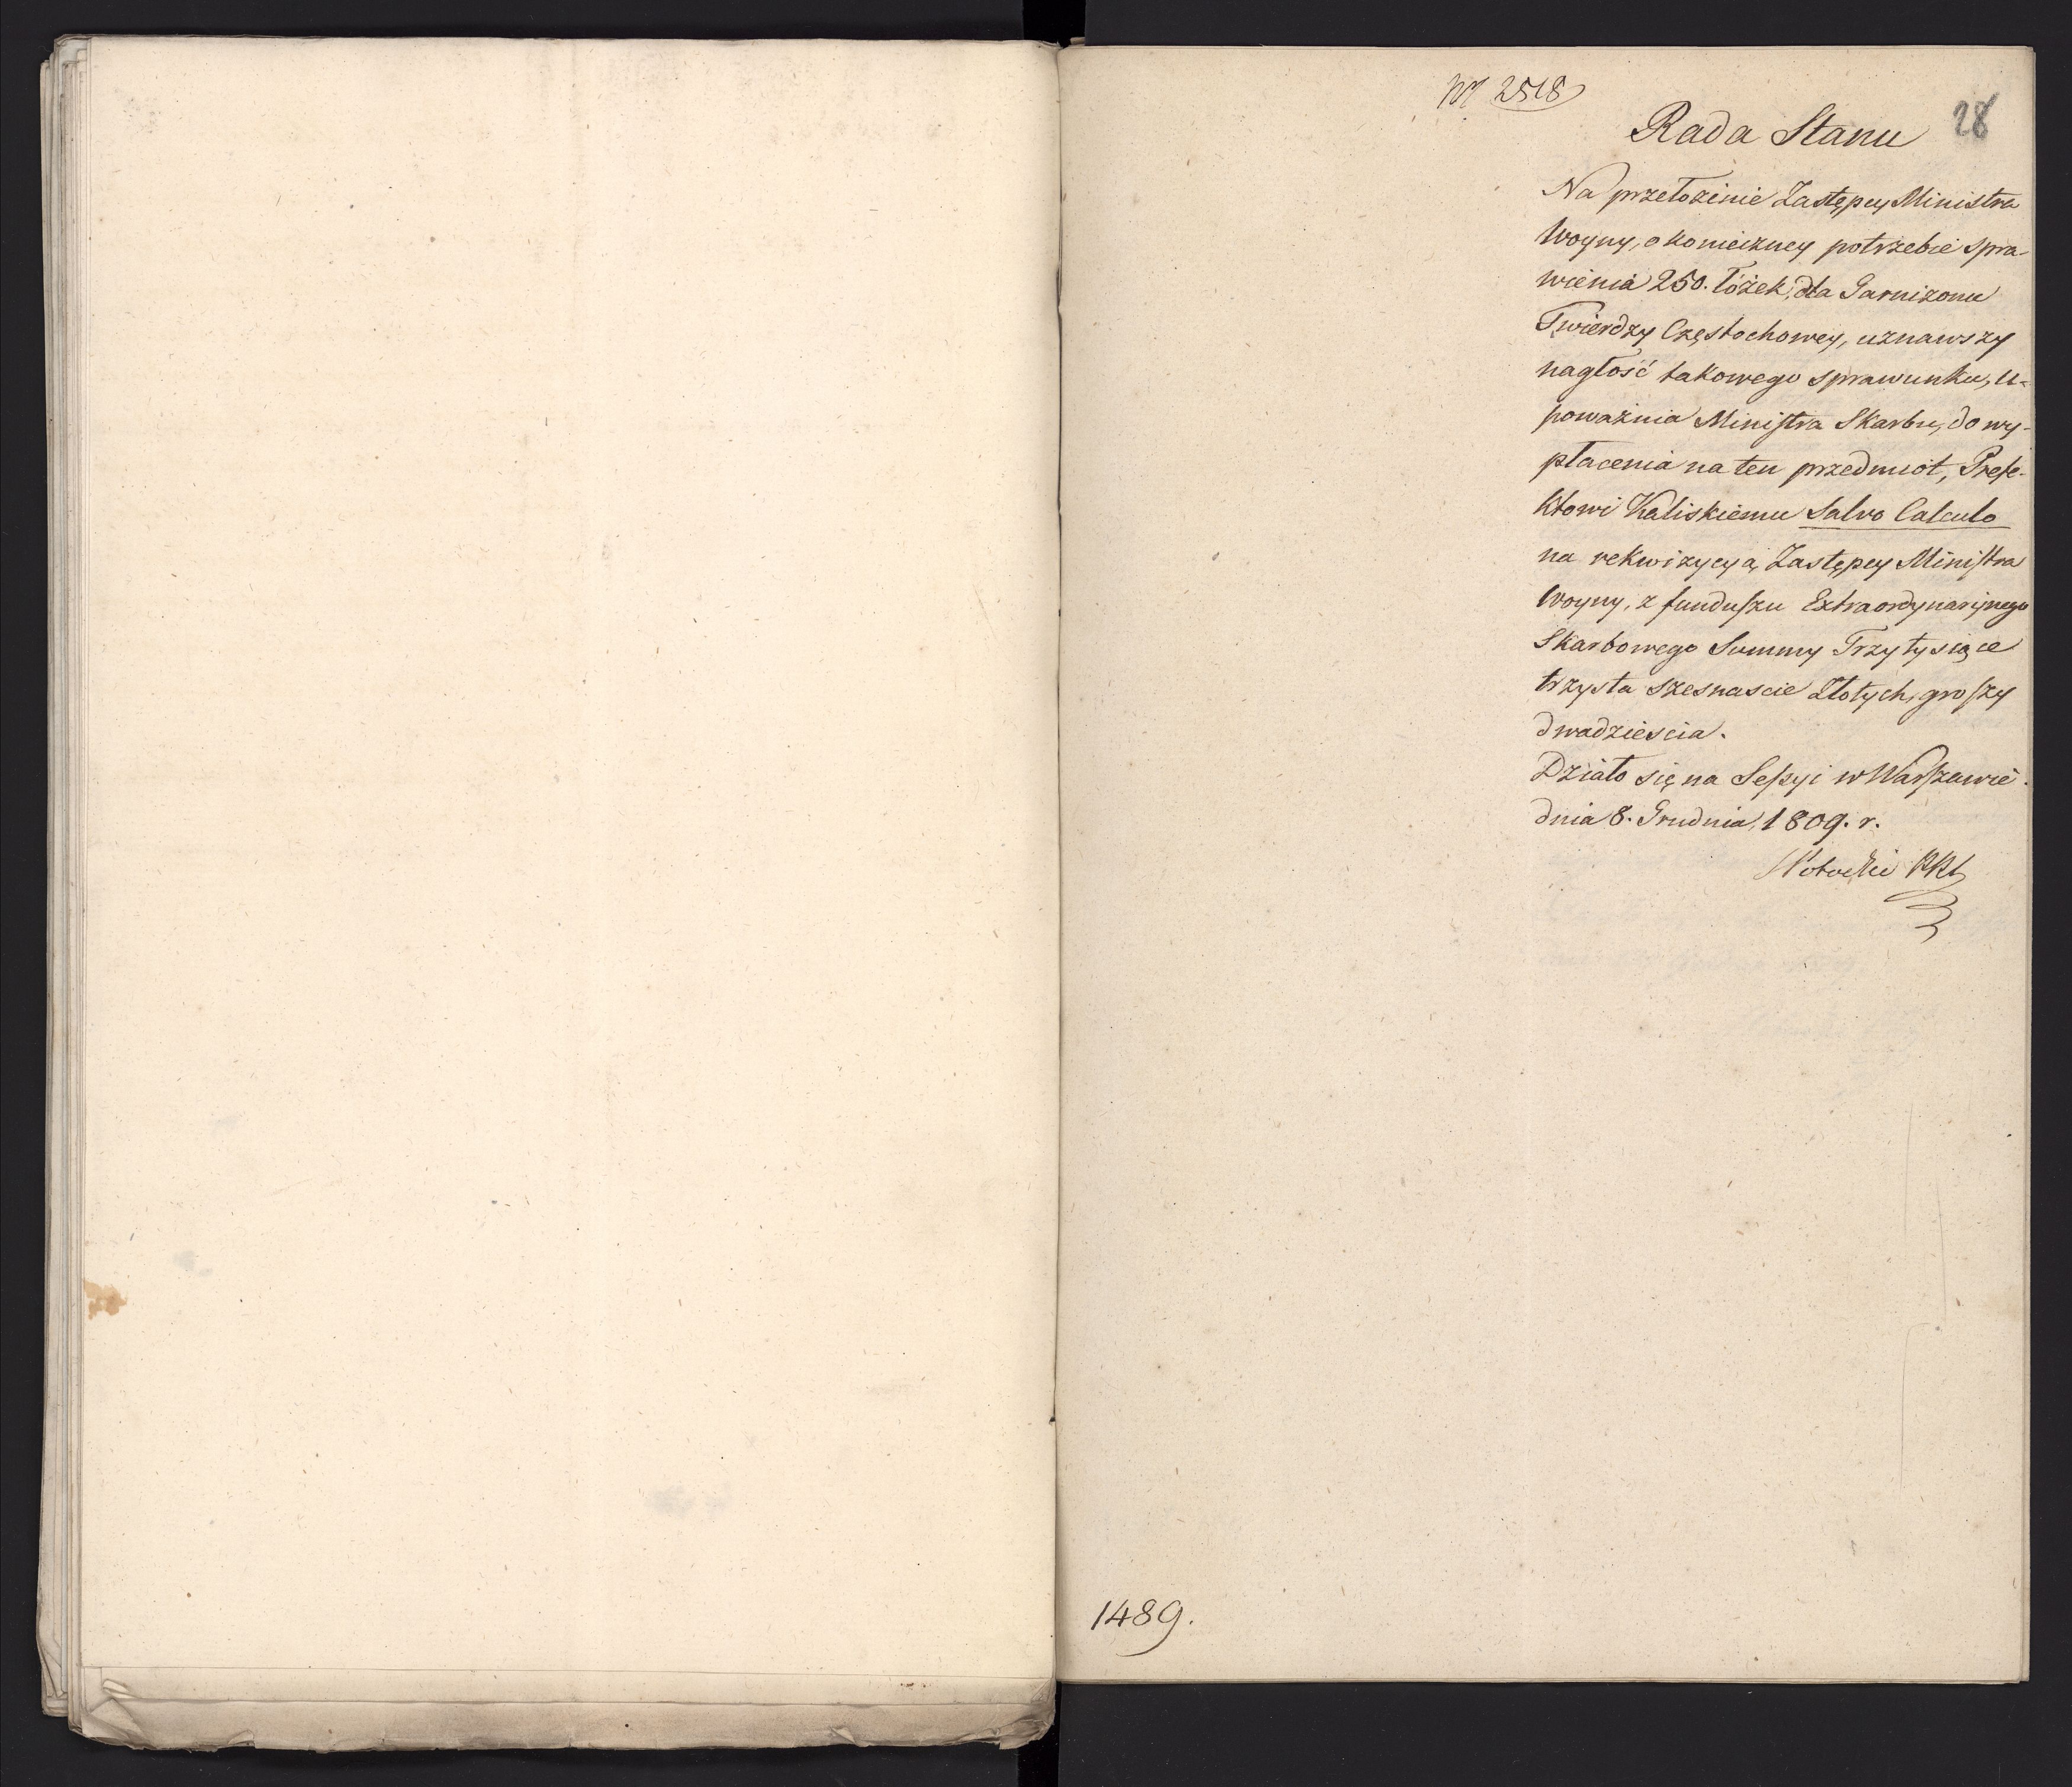 Nr 2518
28
Rada Stanu
Na przełożenie Zastępcy Ministra
Woyny, o konieczney potrzebie spra-
wienia 250. łóżek, dla Garnizonu
Twierdzy Częstochowey, uznawszy
nagłość takowego sprawunku, u-
poważnia Ministra Skarbu, do wy-
płacenia na ten przedmiot, Prefe-
ktowi Kaliskiemu Salvo Calculo
na rekwizycyą Zastępcy Ministra
Woyny, z funduszu Extraordynaryinego
Skarbowego Summy Trzy tysiące
trzysta szesnascie Złotych, groszy
dwadziescia.
Działo się na Sessyi w Warszawie
dnia 8. Grudnia, 1809. r.
Potocki
1489.